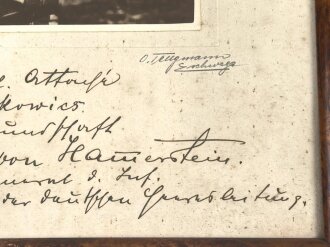 O. Tellgmann
Eschwege
. Attaché
kowics
undschaft
von Hammerstein.
eneral d. Inf.
der deutschen Heeresleitung.